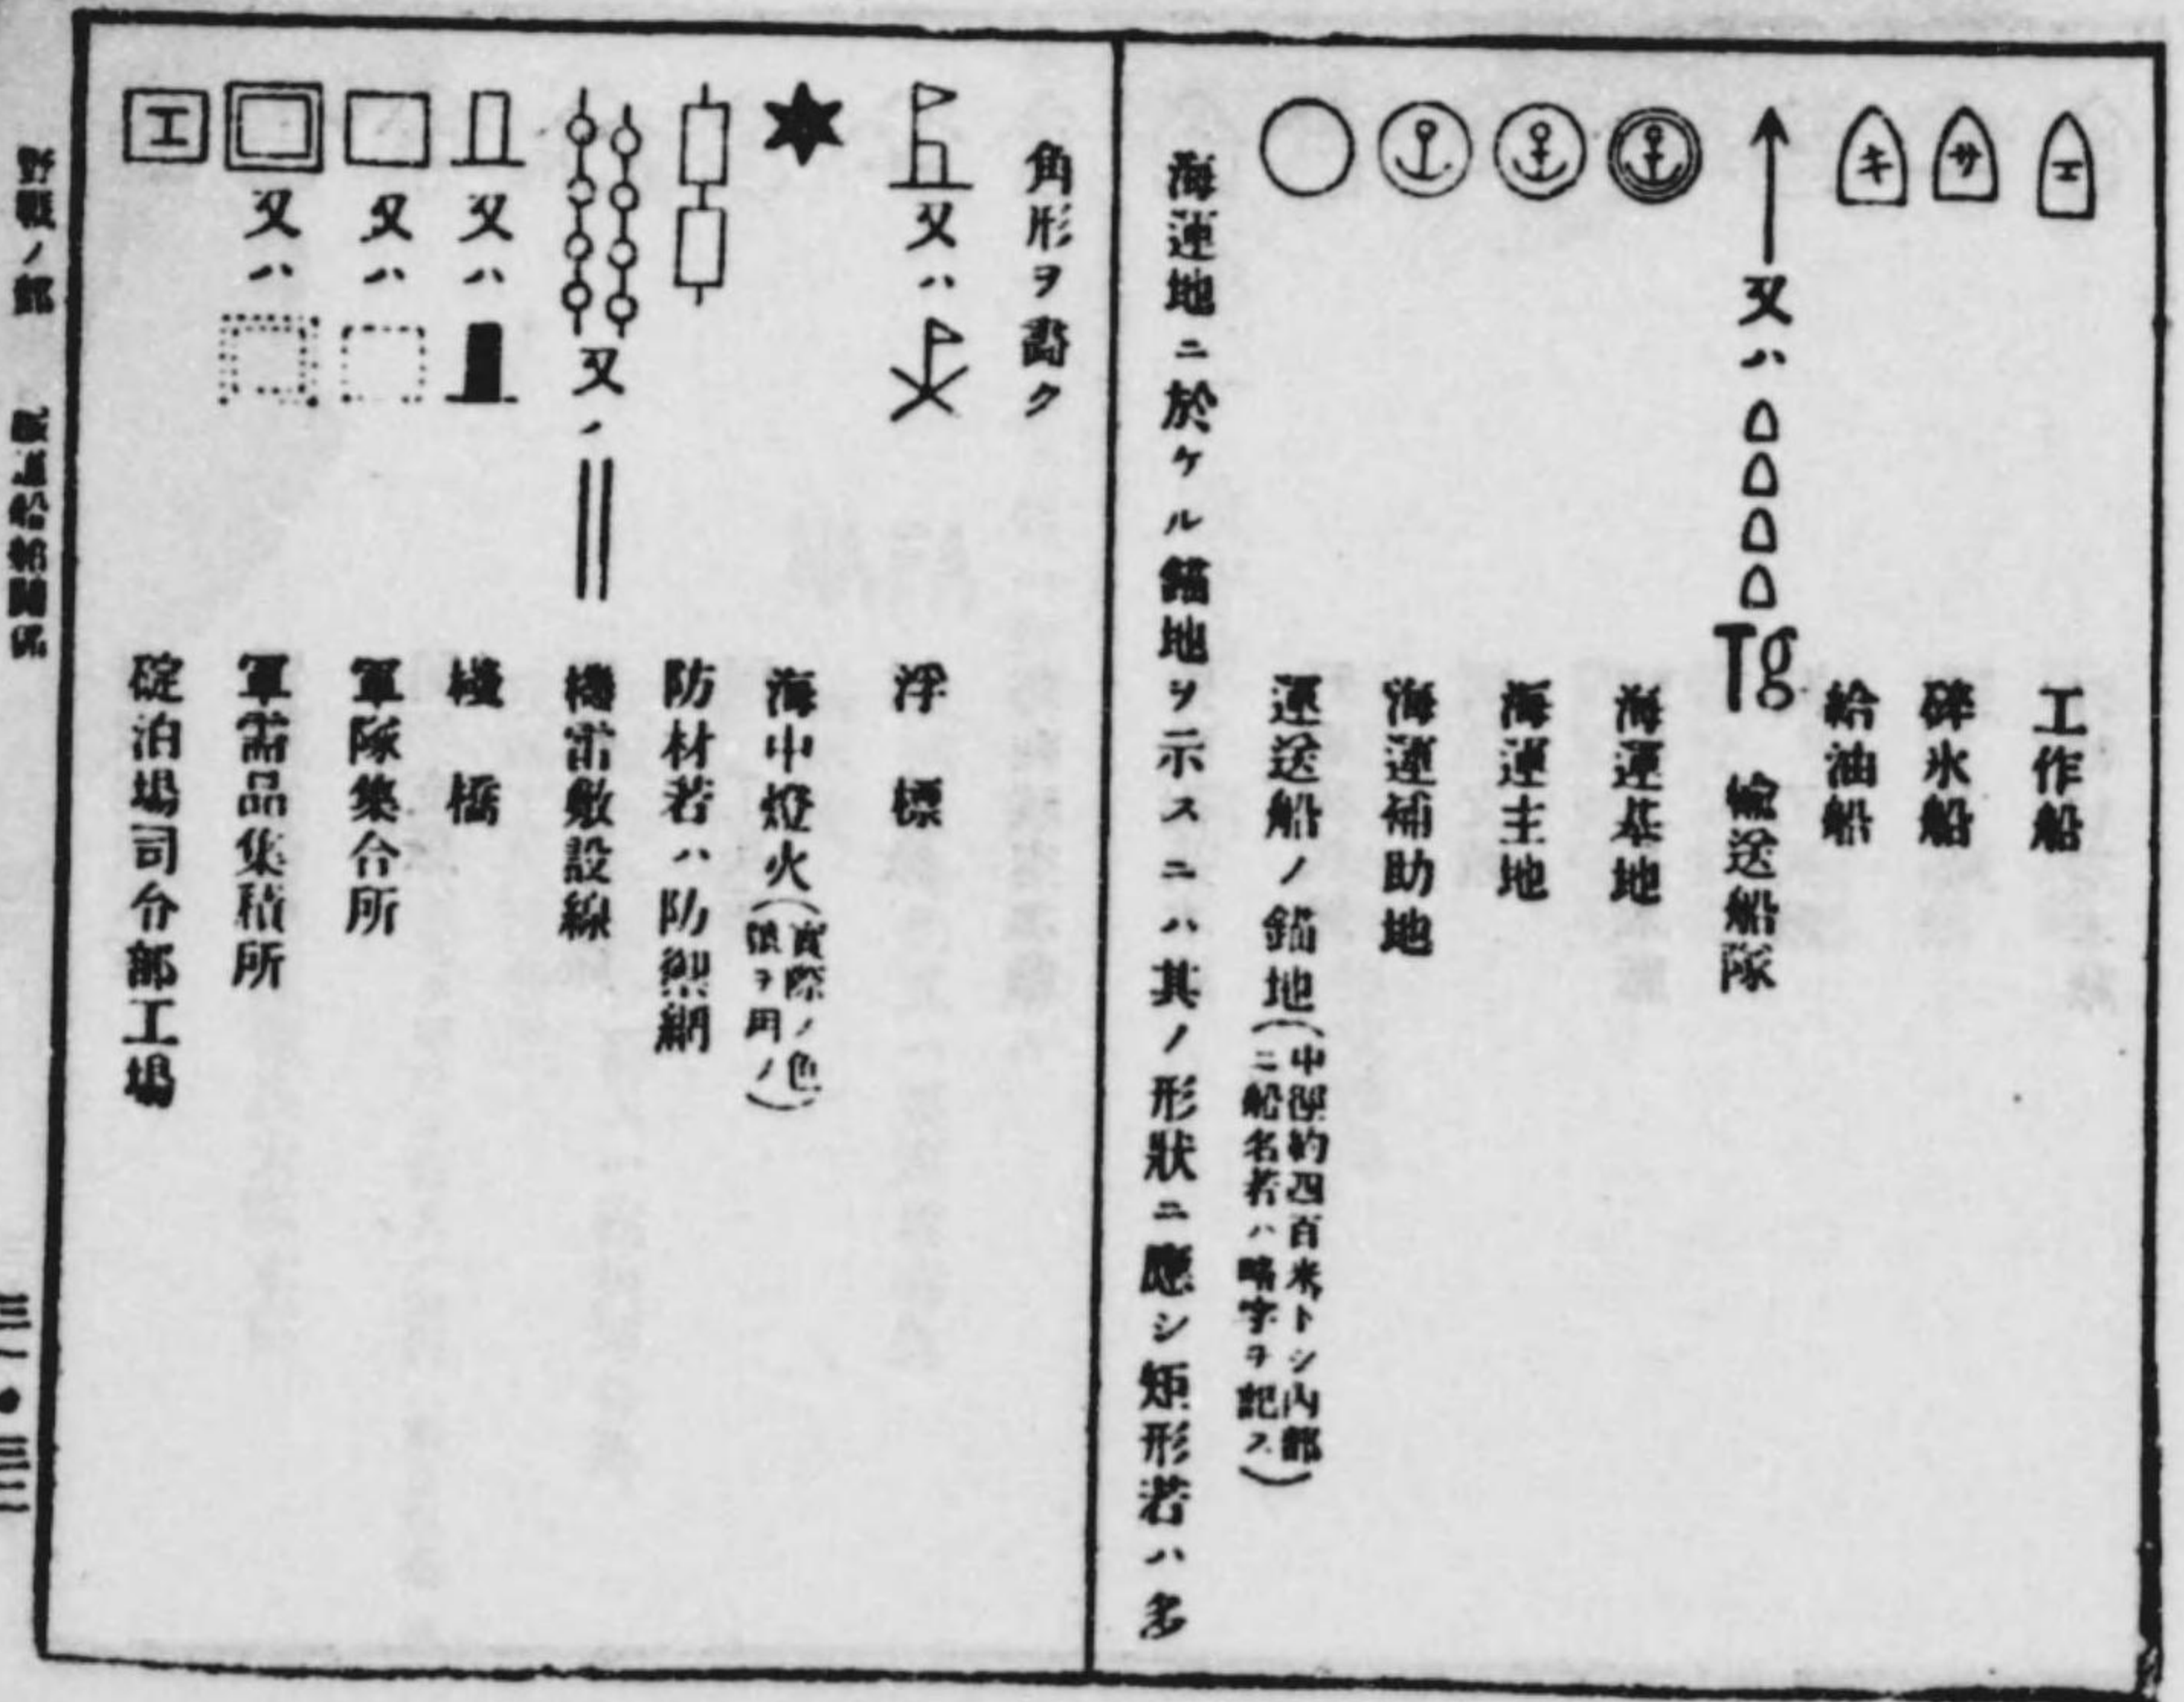 エ 工作船
サ 碎氷船
キ 給油船
又ハ Tg 輸送船隊
海運基地
海運主地
海運補助地
運送船ノ錨地(中徑約四百米トシ内部
ニ船名若ハ略字ヲ記ス)
海運地ニ於ケル錨地ヲ示スニハ其ノ形狀ニ應シ矩形若ハ多
角形ヲ畵ク
又ハ 浮標
海中燈火(實際ノ色
ヲ用ノ)
防材若ハ防禦網
又ノ 機雷敷設線
又ハ 棧橋
又ハ 軍隊集合所
又ハ 軍需品集積所
エ 碇泊場司令部工場
野戰ノ部
三一・三二